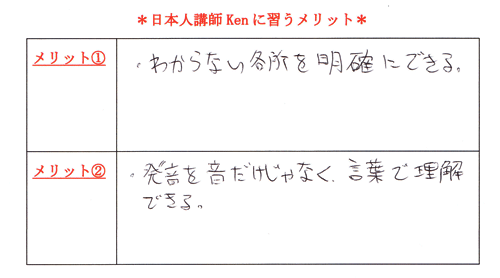 ＊日本人講師Kenに習うメリット＊
メリット①
・わからない各所を明確にできる。
メリット②
・発音を音だけじゃなく、言葉で理解
できる。